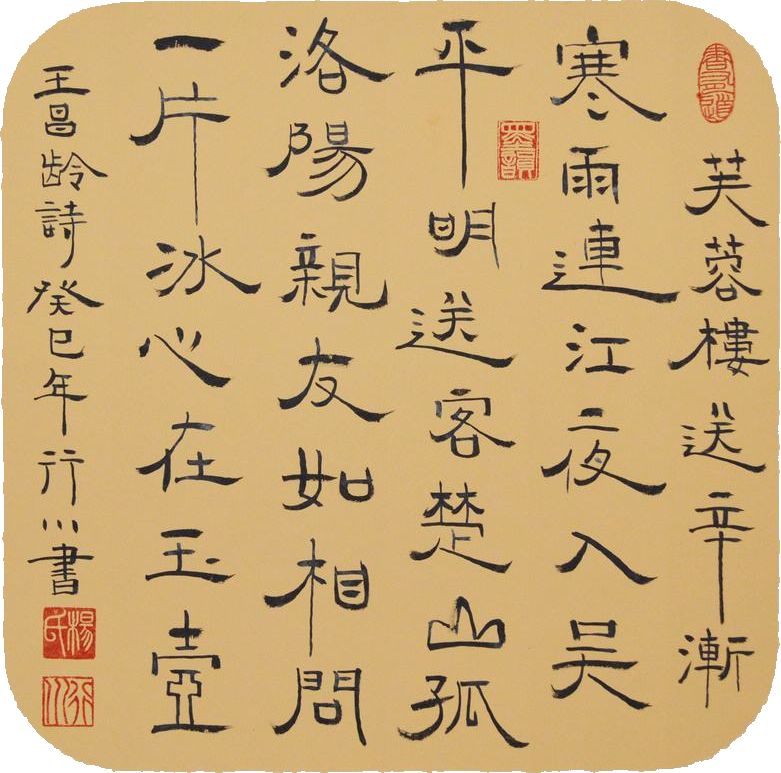 芙蓉樓送辛漸
寒雨連江夜入吳
平明送客楚山孤
洛陽親友如相問
一片冰心在玉壺
王昌齡詩癸巳年行川書
楊氏
行川